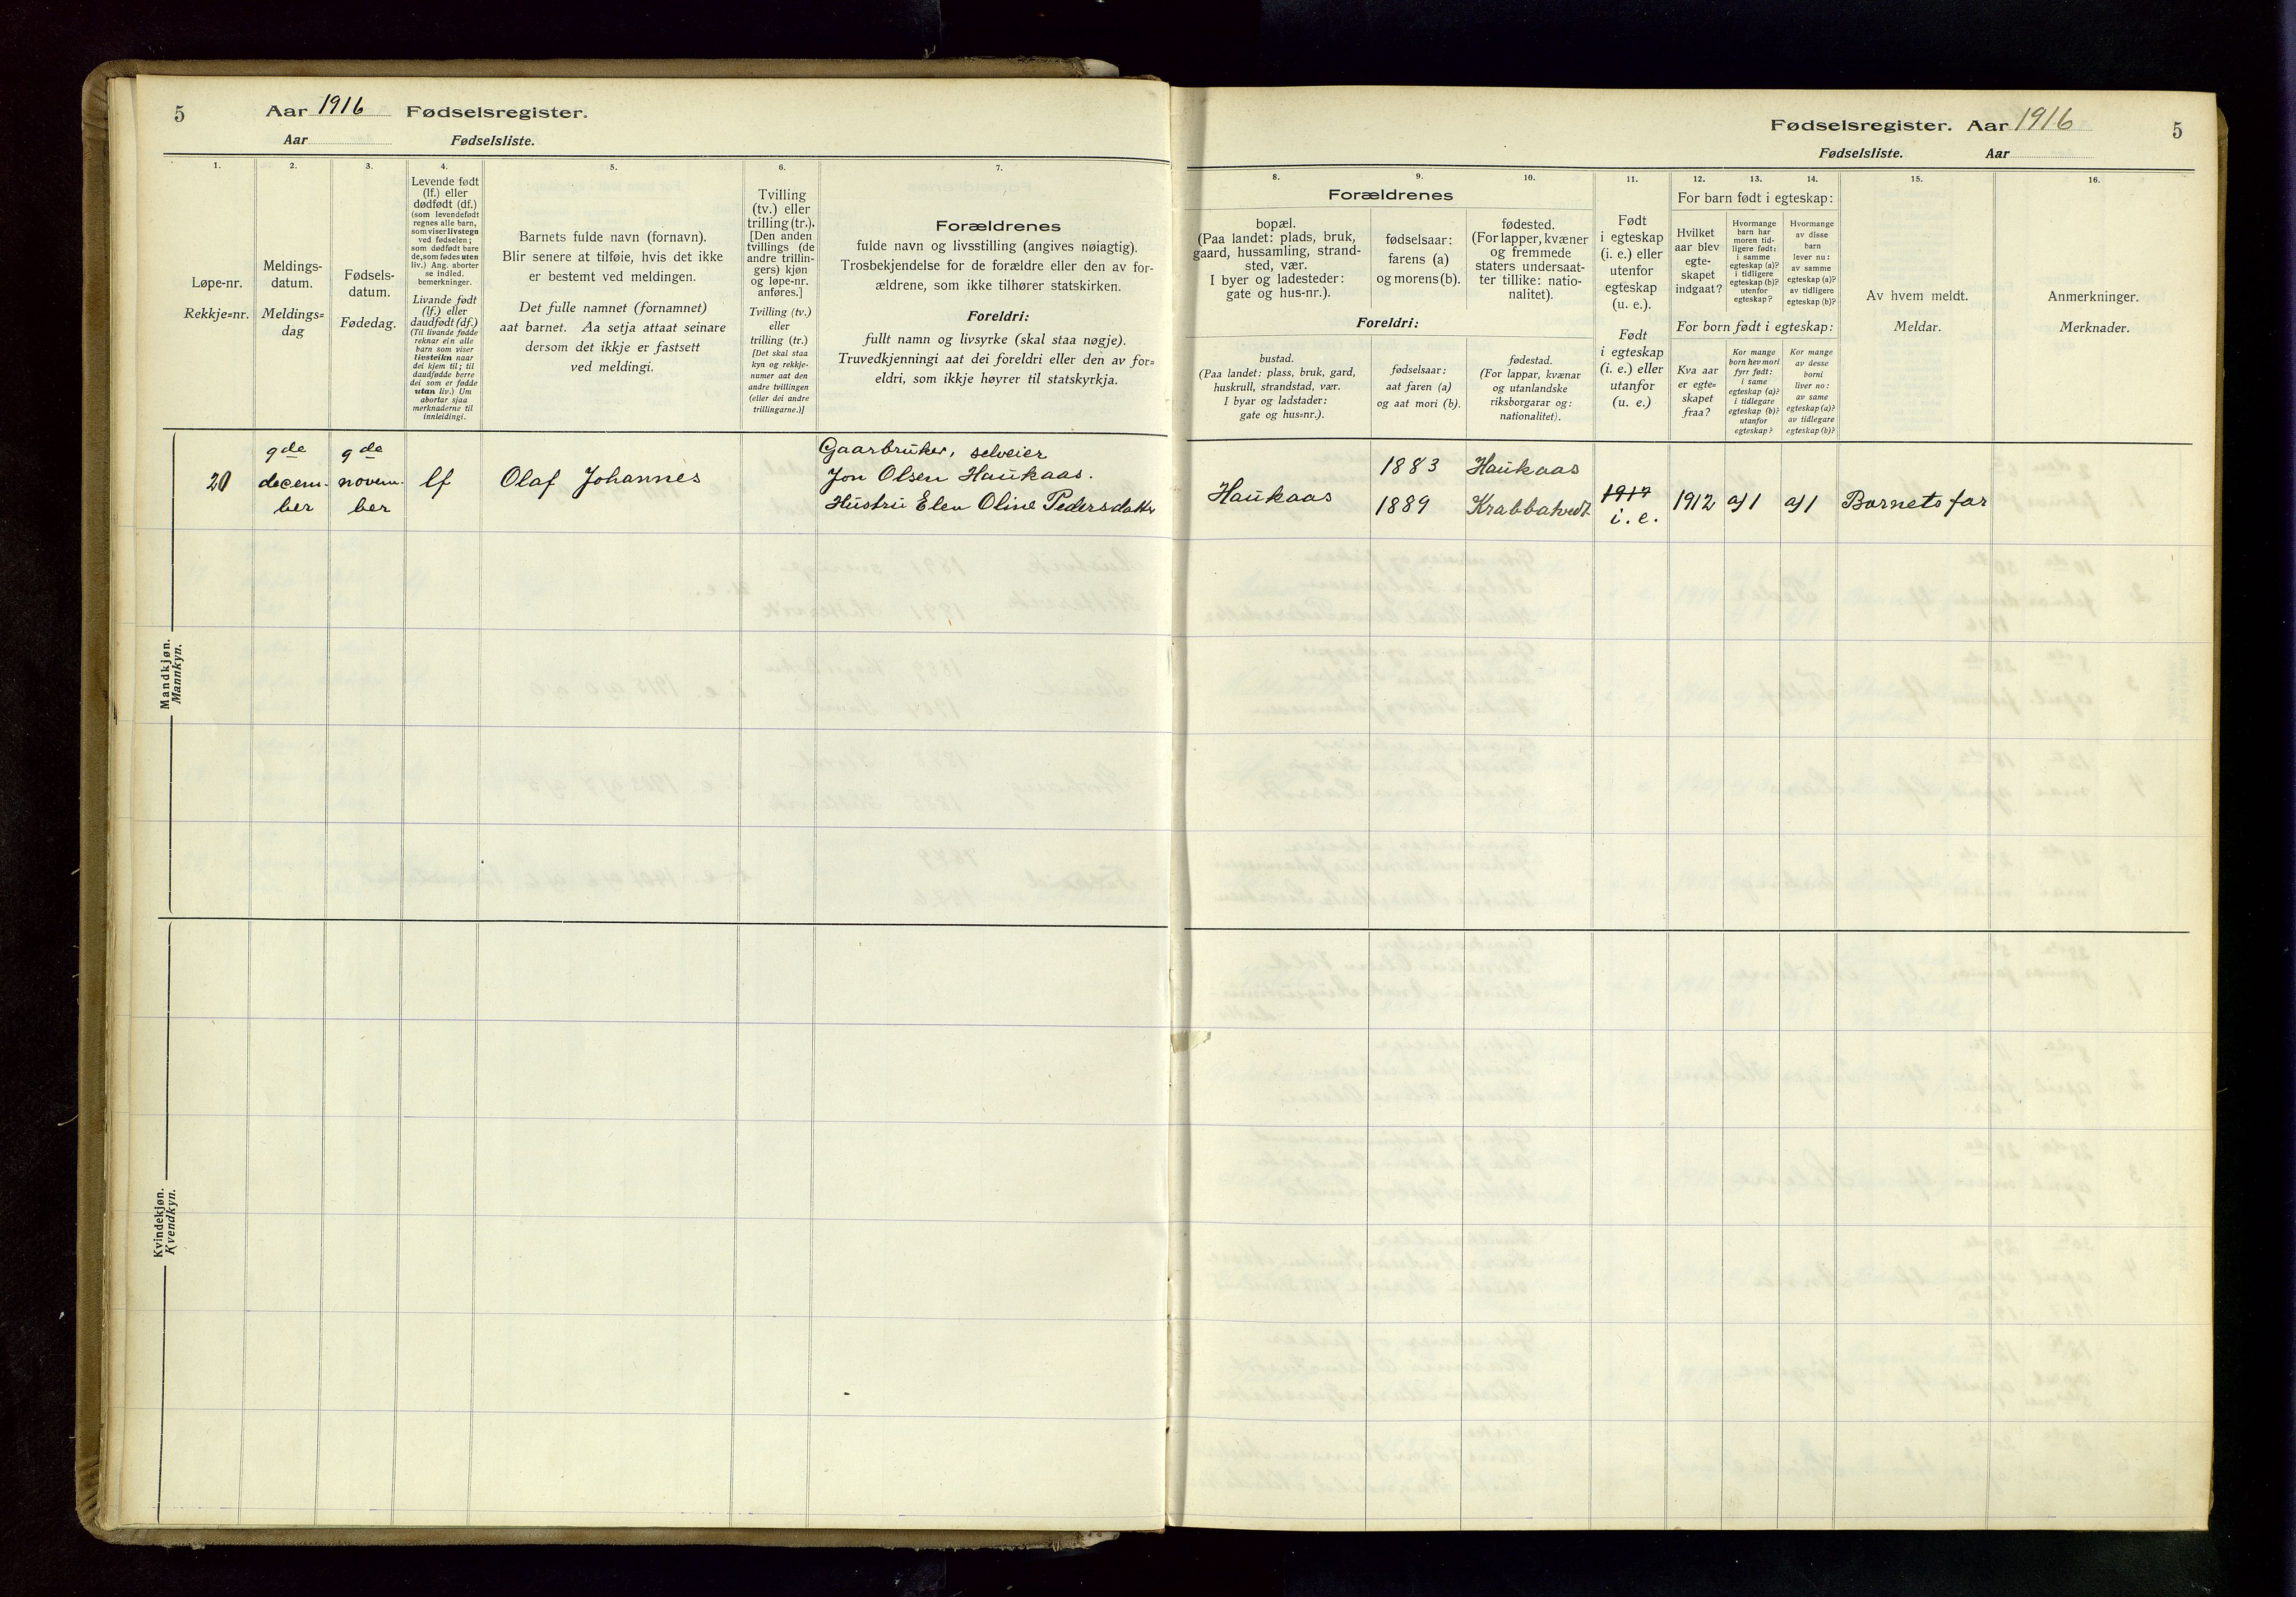 5
Aar 1916 Fødselsregister.
Aar Fødselsliste.
1.
Løpe-nr.
Rekkje=nr.
2.
Meldings-
datum.
Meldings=
dag
3.
Fødsels-
datum.
Fødedag.
4.
Levende født
(lf.) eller
dødfødt (df.)
(som levendefødt
regnes alle barn,
som viser livstegn
ved fødselen;
som dødfødt bare
de, som fødes uten
liv.) Ang. aborter
se indled.
bemerkninger.
Livande født
(lf.) eller
daudfødt (df.)
(Til livande fødde
reknar ein alle
barn som viser
livsteikn naar
dei kjem til; til
daudfødde berre
dei som er fødde
utan liv.) Um
abortar sjaa
merknaderne til
innleidingi.
5.
Barnets fulde navn (fornavn).
Blir senere at tilføie, hvis det ikke
er bestemt ved meldingen.
Det fulle namnet (fornamnet)
aat barnet. Aa setja attaat seinare
dersom det ikkje er fastsett
ved meldingi.
6.
Tvilling
(tv.) eller
trilling (tr.).
[Den anden
tvillings (de
andre trillin-
gers) kjøn
og løpe-nr.
anføres.]
Tvilling (tv.)
eller
trilling (tr.)
[Det skal staa
kyn og rekkje-
numer aat den
andre tvillingen
(eller dei andre
trillingarne.)]
7.
Forældrenes
fulde navn og livsstilling (angives nøiagtig).
Trosbekjendelse for de forældre eller den av for-
ældrene, som ikke tilhører statskirken.
Foreldri:
fullt namn og livsyrke (skal staa nøgje).
Truvedkjenningi aat dei foreldri eller den av for=
eldri, som ikkje høyrer til statskyrkja.
Mandkjøn.
Mannkyn.
20
9de
decem-
ber
9de
novem-
ber
lf
Olaf Johannes
Gaarbruker, selveier
Jon Olsen Haukaas.
Hustru Elen Oline Pedersdatter
Kvindekjøn.
Kvendkyn.
Fødselsregister. Aar 1916
5
Fødselsliste. Aar
Forældrenes
8.
bopæl.
(Paa landet: plads, bruk,
gaard, hussamling, strand-
sted, vær.
I byer og ladesteder:
gate og hus-nr.).
9.
fødselsaar:
farens (a)
og morens (b).
10.
fødested.
(For lapper, kvæner
og fremmede
staters undersaat-
ter tillike: natio-
nalitet).
Foreldri:
bustad.
(Paa landet: plass, bruk, gard,
huskrull, strandstad, vær.
I byar og ladstader:
gate og hus=nr.).
fødselsaar:
aat faren (a)
og aat mori (b).
fødestad.
(For lappar, kvænar
og utanlandske
riksborgarar og:
nationalitet).
11.
Født
i egteskap
(i. e.) eller
utenfor
egteskap
(u. e.).
Født
i egteskap
(i. e.) eller
utanfor
(u. e.)
12. 13. 14.
For barn født i egteskap:
Hvilket
aar blev
egte-
skapet
indgaat?
Hvormange
barn har
moren tid-
ligere født:
i samme
egteskap (a)?
i tidligere
egteskap (b)?
utenfor
egteskap?
Hvormange
av disse
barn
lever nu:
av samme
egteskap (a)?
av tidligere
egteskap (b)?
For born født i egteskap:
Kva aar
er egte=
skapet
fraa?
Kor mange
born hev mori
fyrr født:
i same
egteskap (a)?
i tidlegare
egteskap (b)?
utanfor
egteskap?
Kor mange
av desse
borni
liver no:
av same
egteskap (a)?
av tidlegare
egteskap (b)?
15.
Av hvem meldt.
Meldar.
16.
Anmerkninger.
Merknader.
Haukaas
1883
1889
Haukaas
i. e.
1912
a/1
a/1
Barnets far